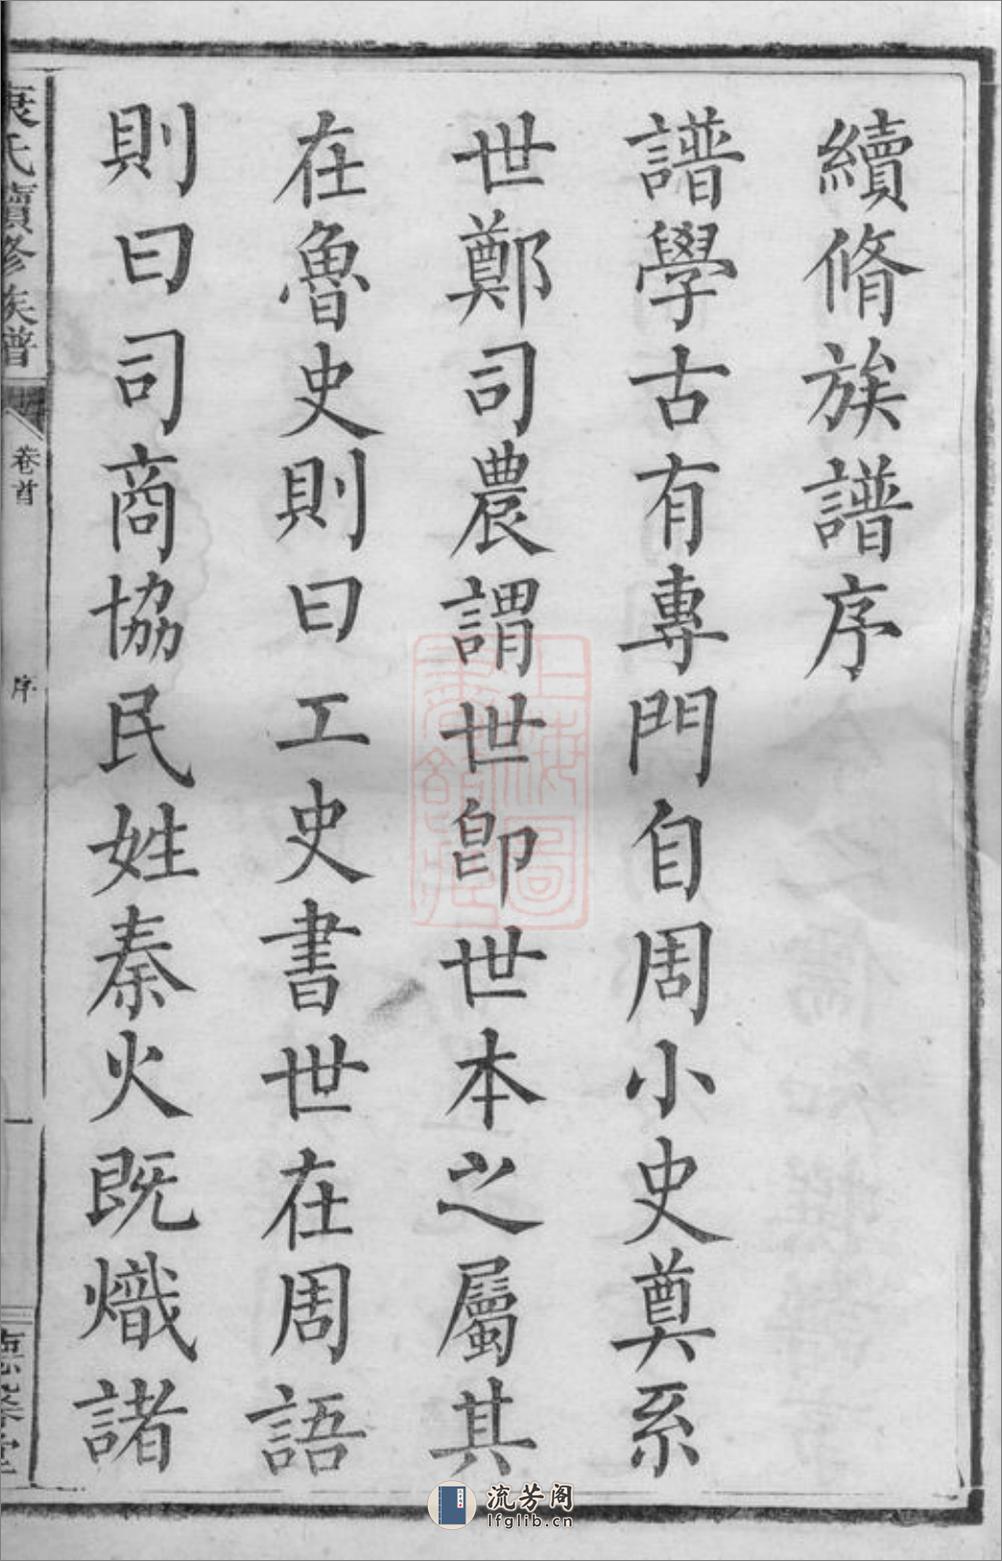 續脩族譜序
譜學古有專門自周小史奠系
世鄭司農謂世卽世本之屬其
在魯史則曰工史書世在周語
則曰司商協民姓秦火既熾諸
氏續修族譜
卷首
序
一
上海圖
書館藏
流芳阁
lfglib.cn